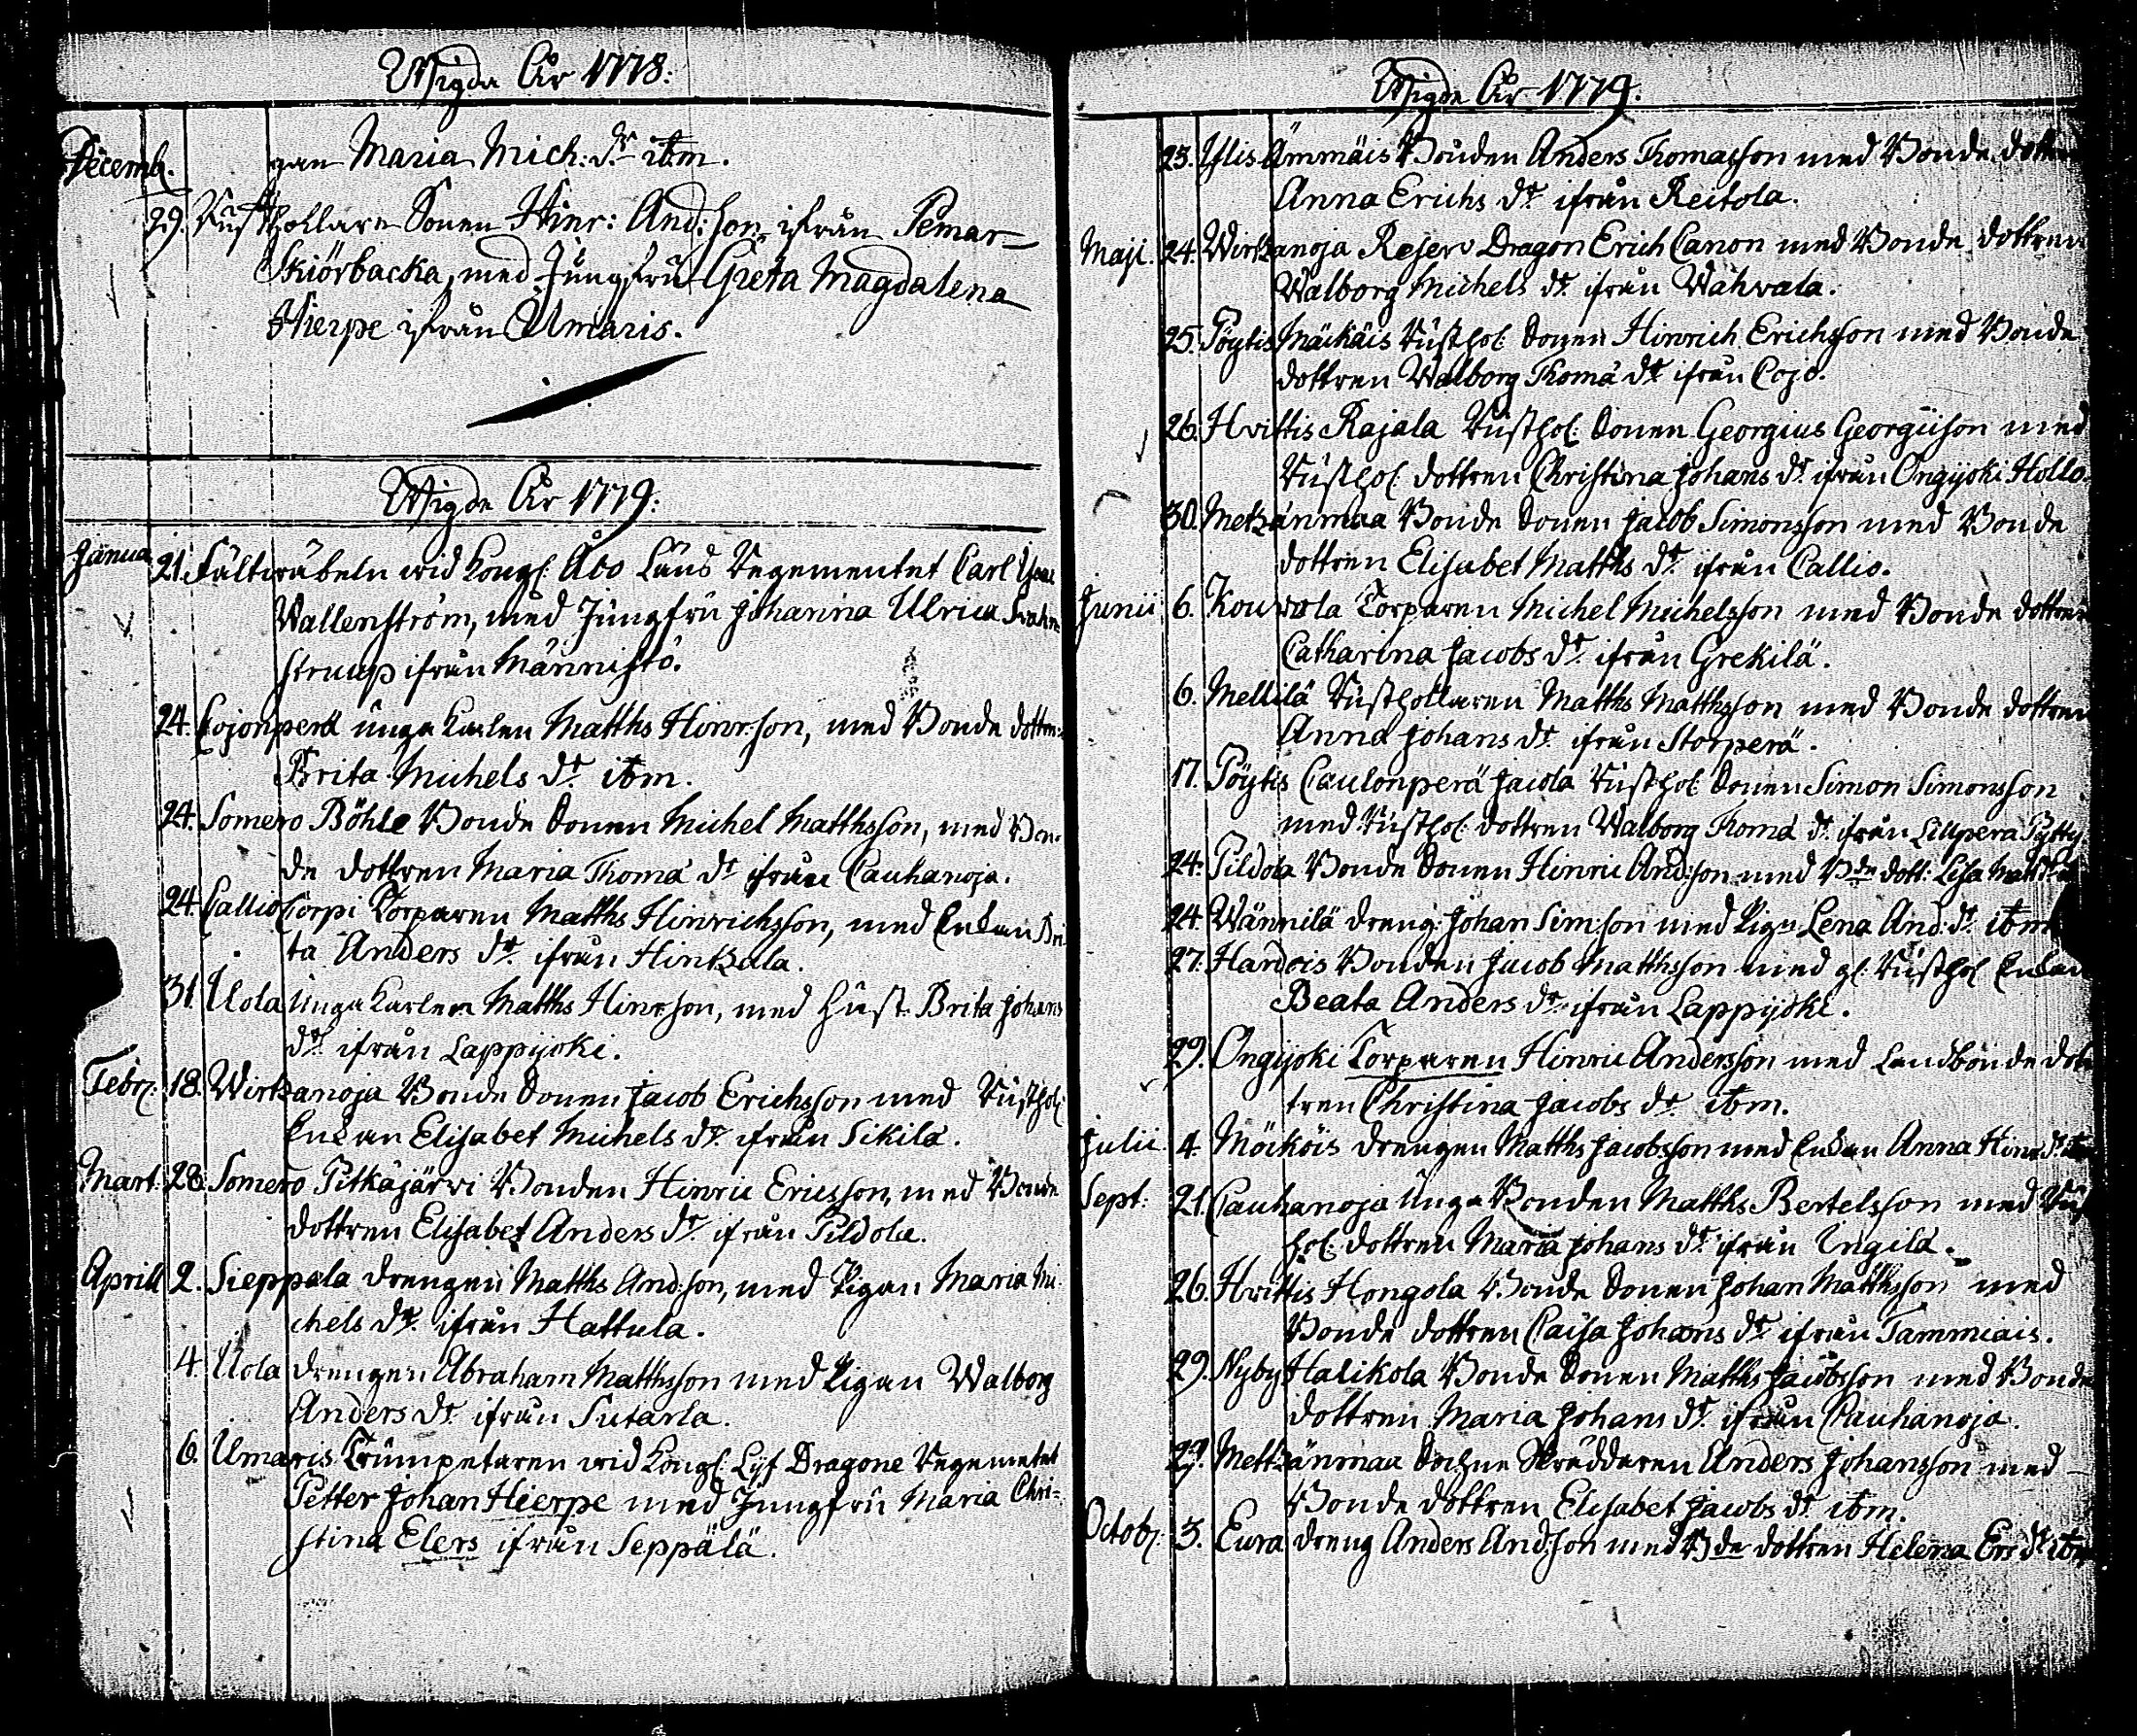 Wigde År 1778.
Decemb. gan Maria Mich: dr ibm.
29. Rusthollare Sonen Hinr: And:son ifrån Pemar-
Skiörbacka, med Jungfru Greta Magdalena
Hierpe ifrån Umaris.
Wigde År 1779.
Janua 21. Fältwäbeln wid Kongl: Åbo Läns Regementet Carl
Wallenström, med Jungfru Johanna Ulrica
strup ifrån Männistö.
24. Cojonperä unga Karlen Matths Hinr:son, med Bonde dottren
Brita Michels dr ibm.
24. Somero Böhle Bonde Sonen Michel Matthsson, med Bon-
de dottren Maria Thomæ dr ifrån Cauhanoja.
24. Callio Corpi Torparen Matths Hinrichsson, med Enkan Bri
ta Anders dr ifrån Hintzala.
31. Uola Unga Karlen Matths Hinr:son, med Hust. Brita Johans
dr ifrån Lappijoki.
Febr: 18. Wirtzanoja Bonde Sonen Jacob Erichsson med Rusthol:
Enkan Elisabet Michels dr ifrån Sikilä.
Mart: 28. Somero Pitkäjärwi Bonden Hinric Ericsson, med Bonde
dottren Elisabet Anders dr ifrån Pildola.
Aprill 2. Sieppala drengen Matths And:son, med Pigan Maria Mi
chels dr ifrån Hattula.
4. Uola drengen Abraham Matthsson med Pigan Walborg
Anders dr ifrån Sutarla.
6. Umaris Trumpetaren wid Kongl: Lif Dragone Regementet
Petter Johan Hierpe med Jungfru Maria Chri-
stina Elers ifrån Seppälä.
Wigde År 1779.
23. Yflis Ämmäis Bonden Anders Thomasson med Bonde dottren
Anna Erichs dr ifrån Reitola.
Maji. 24. Wirtzanoja Reserv Dragon Erich Canon med Bonde dottren
Walborg Michels dr ifrån Wähwala.
25. Pöytis Mäckäis Rusthol: Sonen Hinrich Erichsson med Bonde
dottren Walborg Thomæ dr ifrån Cojo.
26. Hvittis Rajala Rusthol: Sonen Georgius Georgiison med
Rusthol: dottren Christina Johans dr ifrån Ongijoki Hollo.
30. Metzänmaa Bonde Sonen Jacob Simonsson med Bonde
dottren Elisabet Matths dr ifrån Callio.
Junii 6. Kouwola Torparen Michel Michelsson med Bonde dottren
Catharina Jacobs dr ifrån Grekilä.
6. Mellilä Rusthollaren Matths Matthsson med Bonde dottren
Anna Johans dr ifrån Storperä.
17. Pöytis Caulonperä Jacola Rusthol: Sonen Simon Simonsson
med Rusthol: dottren Walborg Thomæ dr ifrån Lillpera Pytty.
24. Pildola Bonde Sonen Hinric And:son med Bde dott: Lisa
24. Wännilä dreng: Johan Sim:son med Pig: Lena And: dr ibm
27. Handois Bonden Jacob Matthsson med gl: Rusthol Enkan
Beata Anders dr ifrån Lappijoki.
29. Ongijoki Torparen Hinric Andersson med Landbonde dot
tren Christina Jacobs dr ibm.
Julii 4. Möcköis drengen Matths Jacobsson med Enkan Anna Hinr: dr
Sept: 21. Cauhanoja Unga Bonden Matths Bertelsson med Rust
hol: dottren Maria Johans dr ifrån Ingilä.
26. Hvittis Hongola Bonde Sonen Johan Matthsson med
Bonde dottren Caisa Johans dr ifrån Tammiais.
29. Nyby Halikola Bonde Sonen Matths Jacobsson med Bonde
dottren Maria Johans dr ifrån Cauhanoja.
29. Mettzänmaa Sochne Skräddaren Anders Johansson med
Bonde dottren Elisabet Jacobs dr ibm.
Octob: 3. Eura dreng Anders And:son med Bde dottren Helena Ers dr ibm